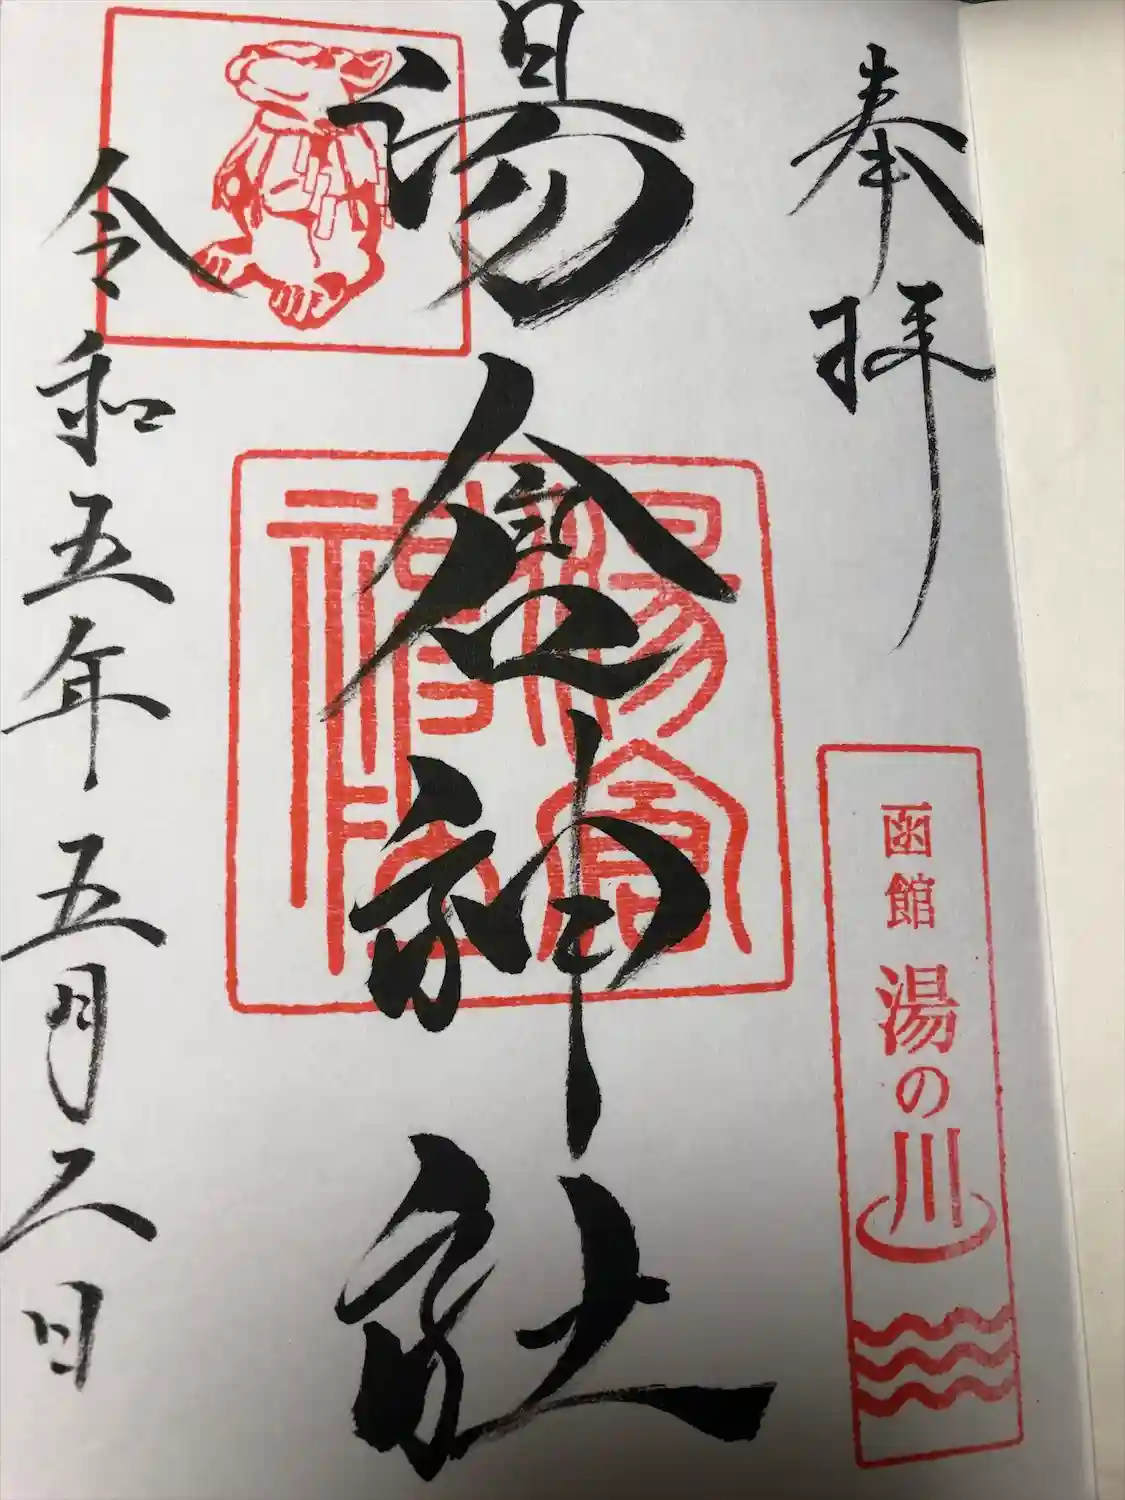 奉拝
函館 湯の川
湯倉神社
湯倉神社
令和五年五月二日